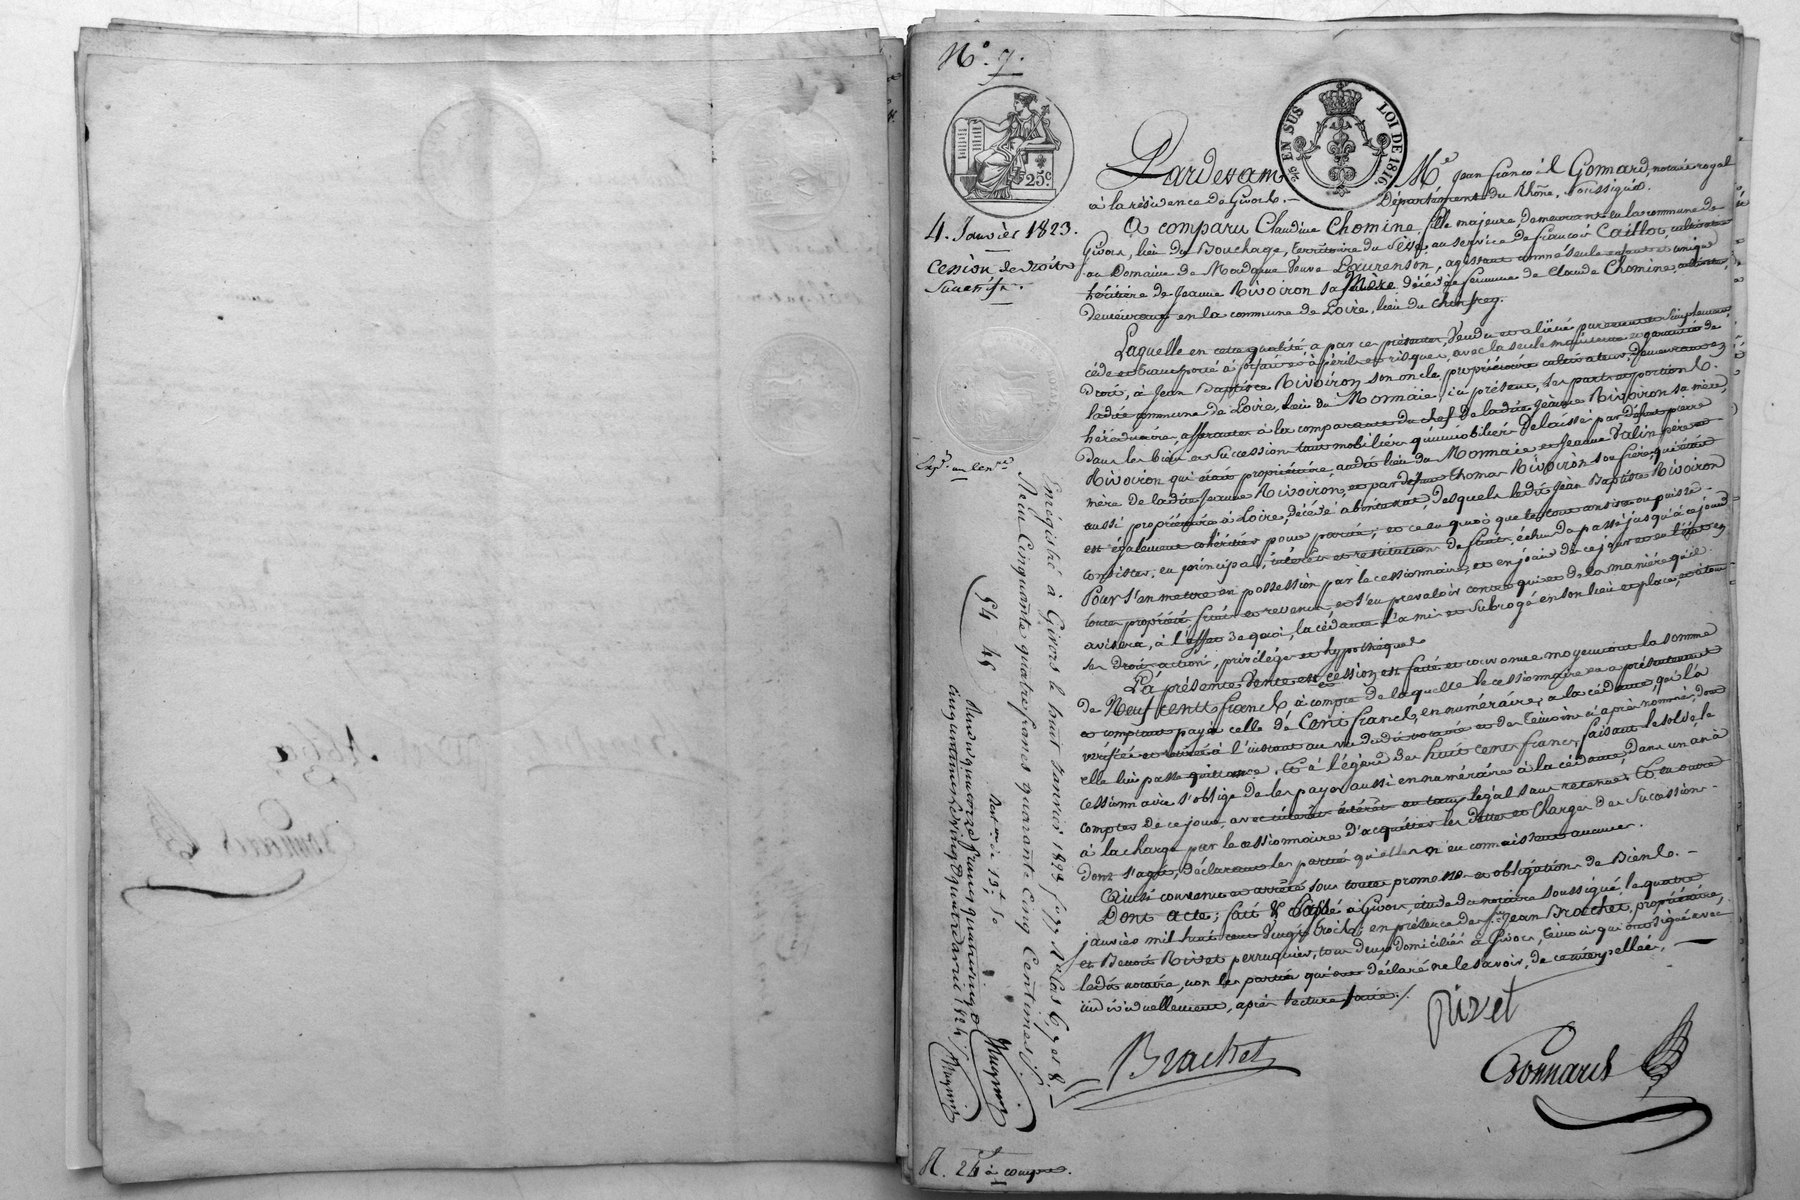 N.o 7.
25c.
EN SUS LOI DE 1816.
4. Janvier 1823.
Cession de droits
Successifs.
Pardevant Me Jean François Gonnard, notaire royal
à la résidence de Givors. Département du Rhône, soussigné.
A comparu Claudine Chomine fille majeure demeurant en la commune de
Givors, lieu du Bouchage, territoire du au service de françois Caillot, cultivateur
au Domaine de Madame Veuve Laurenson, agissant comme seule enfant et unique
héritière de Jeanne Rivoiron sa Mère décédée femme de Claude Chomine,
demeurant en la commune de Loire, lieu du
Laquelle en cette qualité a par ces présentes, Vendu et aliéné purement et simplement
cédé et transporté à forfait et à périls et risques, avec la seule maintenue et garantie de
Droit, à Jean Baptiste Rivoiron son oncle propriétaire cultivateur, Demeurant en
ladite commune de Loire, lieu du Monnaie, ici présent, Ses part et portion
héréditaire, afférantes à la comparante du chef de ladite Jeanne Rivoiron sa mère,
dans les biens et Succession tant mobiliers qu'immobiliers Delaissés par défunt pierre
Rivoiron qui était propriétaire, audit lieu du Monnaie et Jeanne Valin père et
mère de ladite Jeanne Rivoiron, et par défunt thomas Rivoiron son frère, qui était
aussi propriétaire à Loire, décédé abintestat, desquels ledit Jean Baptiste Rivoiron
est également cohéritier pour partie; et ce en quoi que le tout consiste ou puisse
consister, en principal, intérêts et restitution de fruits échus du passé jusqu'à ce jour
Pour s'en mettre en possession par le cessionnaire, et en jouir de ce jour et à l'avenir en
toute propriété, fruits et revenus et s'en prevaloir contre qui et de la manière qu'il
avisera, à l'effet de quoi, la cédante l'a mis et subrogé en son lieu et place, et à tous
ses droits actions, privilège et hypothèque
La présente Vente et cession est faite et convenue moyennant la somme
de Neuf cents francs à compte de laquelle le cessionnaire en a présentement
et comptant payé celle de Cent francs, en numéraire, à la cédante, qui l'a
vérifiée et retirée à l'instant au vu dudit notaire et des témoins ci après nommés, dont
elle lui passe quittance. Et à l'égard des huit cents francs faisant le solde le
cessionnaire s'oblige de les payer aussi en numéraire à la cédante, dans un an à
compter de ce jour, avec intérêt au taux légal sans retenue. Et en outre
à la charge par le cessionnaire d'acquitter les dettes et Charges des Successions
dont s'agit, déclarant les parties qu'elles n'en connaissent aucunes.
Ainsi convenu et arrêté sous toute promesse et obligation de Biens.
Dont acte; fait & Passé à Givors, étude du notaire soussigné, le quatre
janvier mil huit cent Vingt trois; en présence des Srs Jean Brachet, propriétaire,
et Benoit Rivet perruquier, tous deux domiciliés à Givors, témoins qui ont signé avec
ledit notaire, non les parties qui ont déclaré ne le savoir, de ce interpellées,
individuellement, après lecture faite.
Rivet
Brachet
Gonnard
Enregistré à Givors le huit Janvier 1823
Reçu Cinquante quatre francs quarante cinq Centimes
54 45
R. 24 à compte.